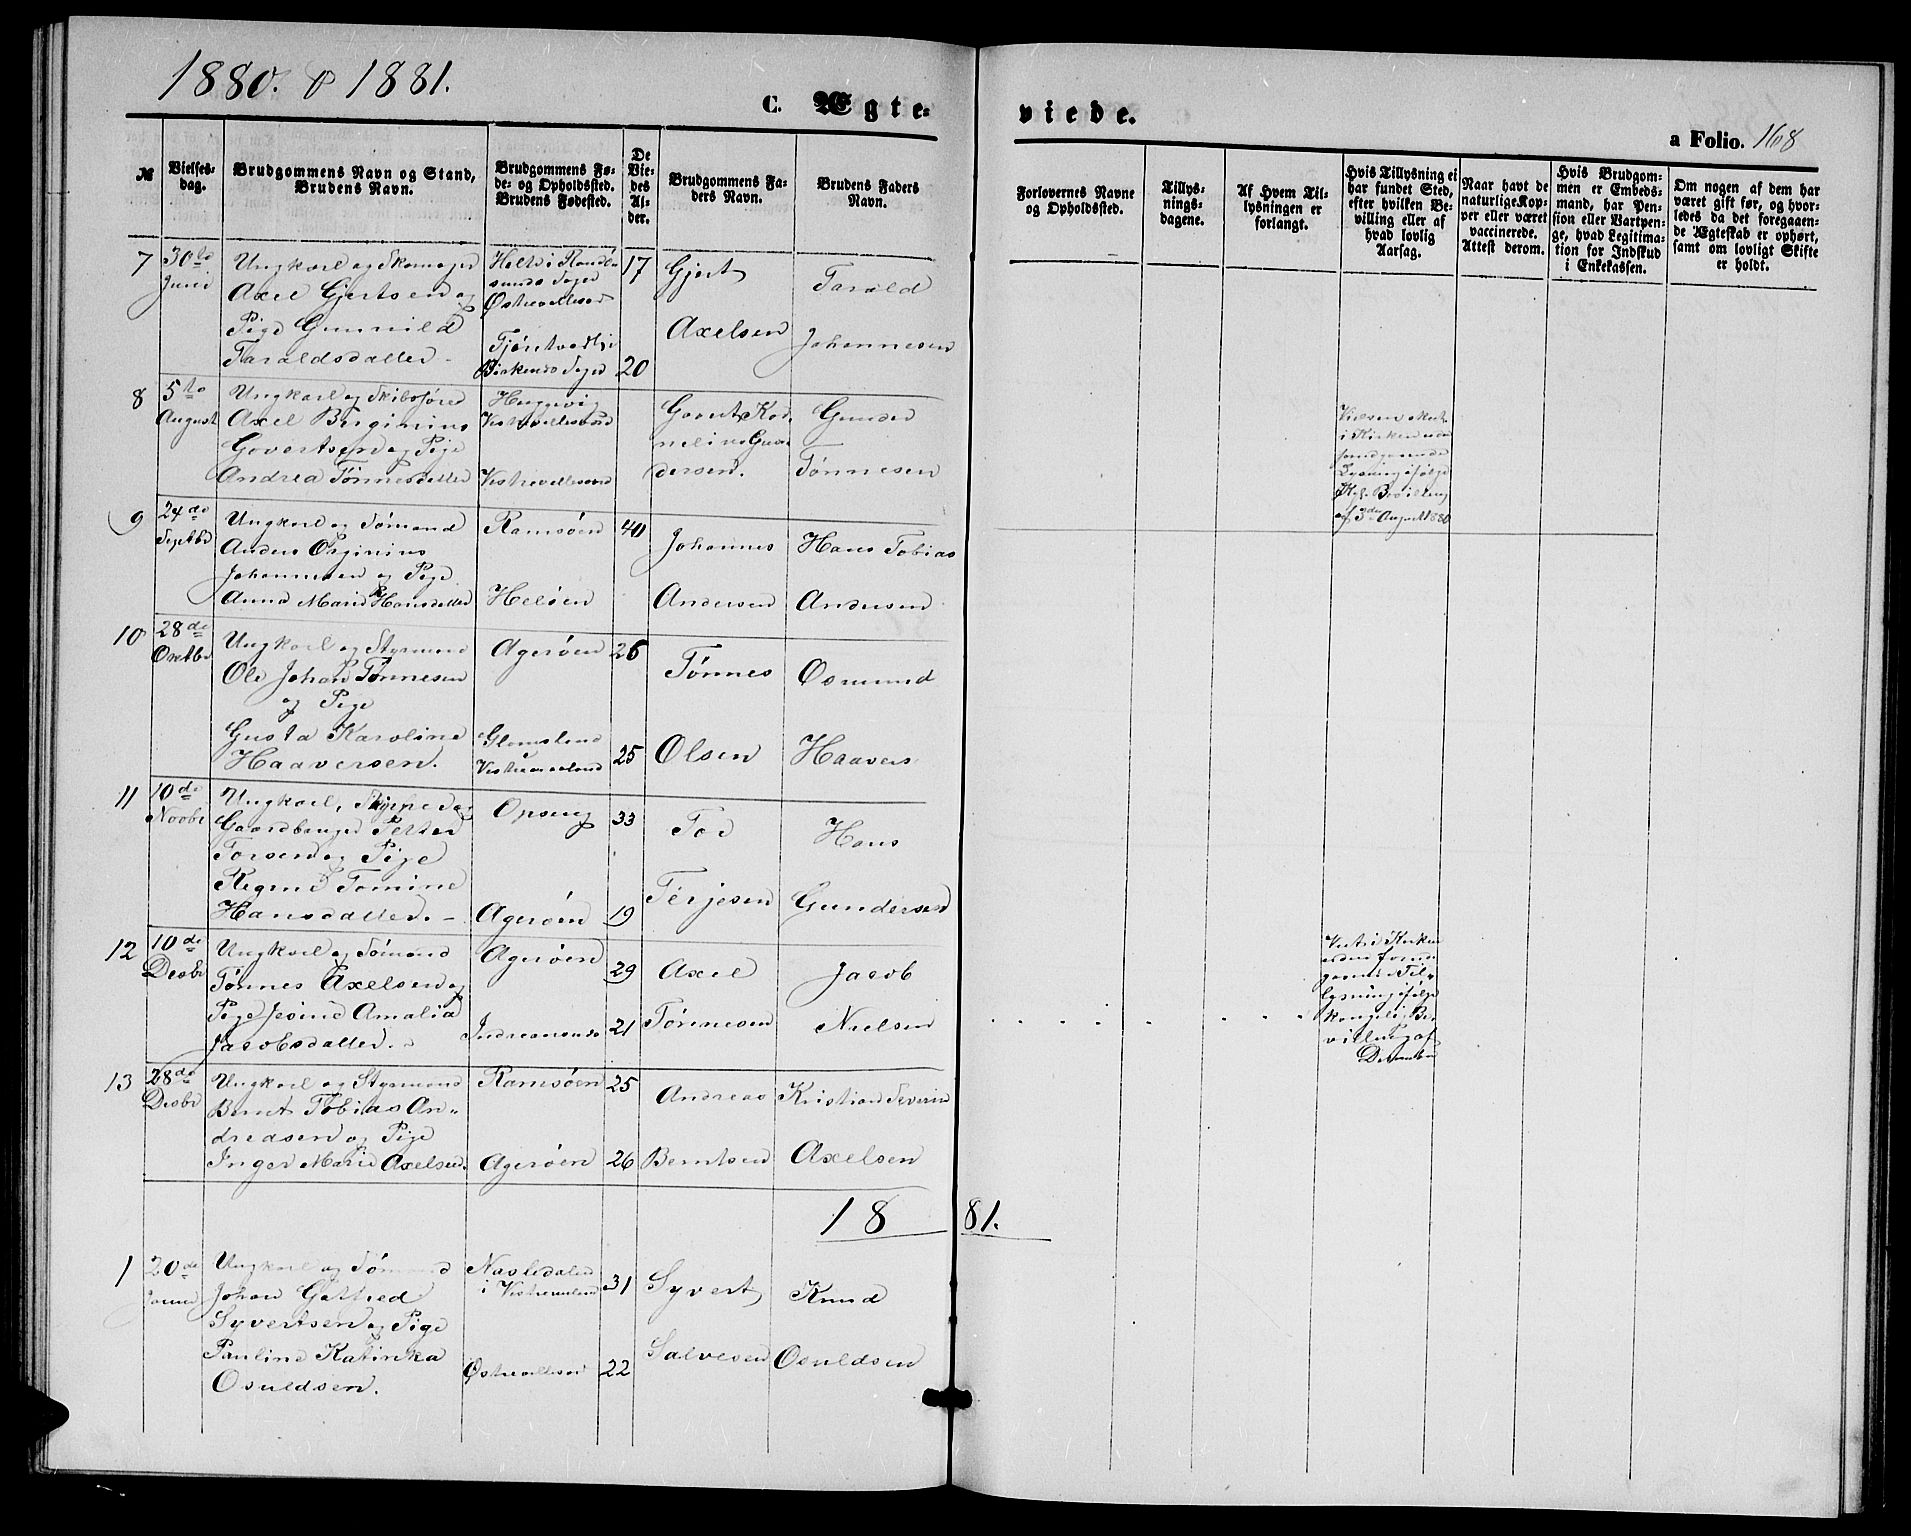 1880. & 1881.
C. Ægte-
viede.
a Folio. 168
№
Vielses-
dag.
Brudgommens Navn og Stand,
Brudens Navn.
Brudgommens Fø-
de- og Opholdssted.
Brudens Fødested.
De
Vie-
des
Al-
der.
Brudgommens Fa-
ders Navn.
Brudens Faders
Navn.
Forlovernes Navne
og Opholdssted.
Tillys-
nings-
dagene.
Af Hvem Til-
lysningen er
forlangt.
Hvis Tillysning ei
har fundet Sted,
efter hvilken Be-
villing eller af
hvad lovlig
Aarsag.
Naar havt de
naturlige Kop-
per eller været
vaccinerede.
Attest derom.
Hvis Brudgom-
men er Embeds-
mand, har Pen-
sion eller Vartpen-
ge, hvad Legitima-
tion for Indskud
i Enkekassen.
Om nogen af dem har
været gift før, og hvor-
ledes da det foregaaen-
de Ægteskab er ophørt,
samt om lovligt Skifte
er holdt.
7
30te
Juni
Ungkarl og Skomager
Axel Gjertsen og
Pige Gunnild
Taraldsdatter
Holte i Randø-
sunds Sogn
Østrevallesand
Tjøntvedt i
Birkenes Sogn
17
20
Gjert
Axelsen
Tarald
Johannesen
8
5te
August
Ungkarl og Skibsfører
Axel Berginius
Govertsen og Pige
Andrea Tønnesdatter
Heggevig
Vestrevallesand
Vestrevallesand
Govert Kor
nelius Gun
dersen.
Gunder
Tønnesen
Vielsen skeet
i Kirken uden
foregaaende
Lysning ifølge
Kgl. Bevilling
af 3de August 1880
9
24de
Septbr
Ungkarl og Sømand
Anders Berginius
Johannesen og Pige
Anna Marie Hansdatter
Ramsøen
Heløen
40
Johannes
Andersen
Hans Tobias
Andersen
10
28de
Octbr
Ungkarl og Styrmand
Ole Johan Tønnesen
og Pige
Gusta Karoline
Haaversen.
Agerøen
Glamsland
Vestremoland
26
25
Tønnes
Olsen
Osmund
Haavers
11
10de
Novbr
Ungkarl, Skipper og
Gaardbruger Petter
Torsen og Pige
Regine Tomine
Hansdatter.
Opsug
Agerøen
33
19
Tor
Terjesen
Hans
Gundersen
12
10de
Desbr
Ungkarl og Sømand
Tønnes Axelsen og
Pige Josine Amalia
Jacobsdatter.
Agerøen
29
21
Axel
Tønnesen
Jacob
Nielsen
Viet i Kirken
uden foreg
gaaende Til-
lysning ifølge
kongelig Be-
villing af
December
13
28de
Desbr
Ungkarl og Styrmand
Bernt Tobias An-
dreasen og Pige
Inger Marie Axelsen.
Ramsøen
Agerøen
25
26
Andreas
Berntsen
Kristian Severin
Axelsen
1881.
1
20de
Ungkarl og Sømand
Johan Gotfred
Syvertsen og Pige
Pauline Katinka
Osuldsen.
Nasledalen
i Vestremoland
Østrevallesand
31
22
Syvert
Salvesen
Knud
Osuldsen